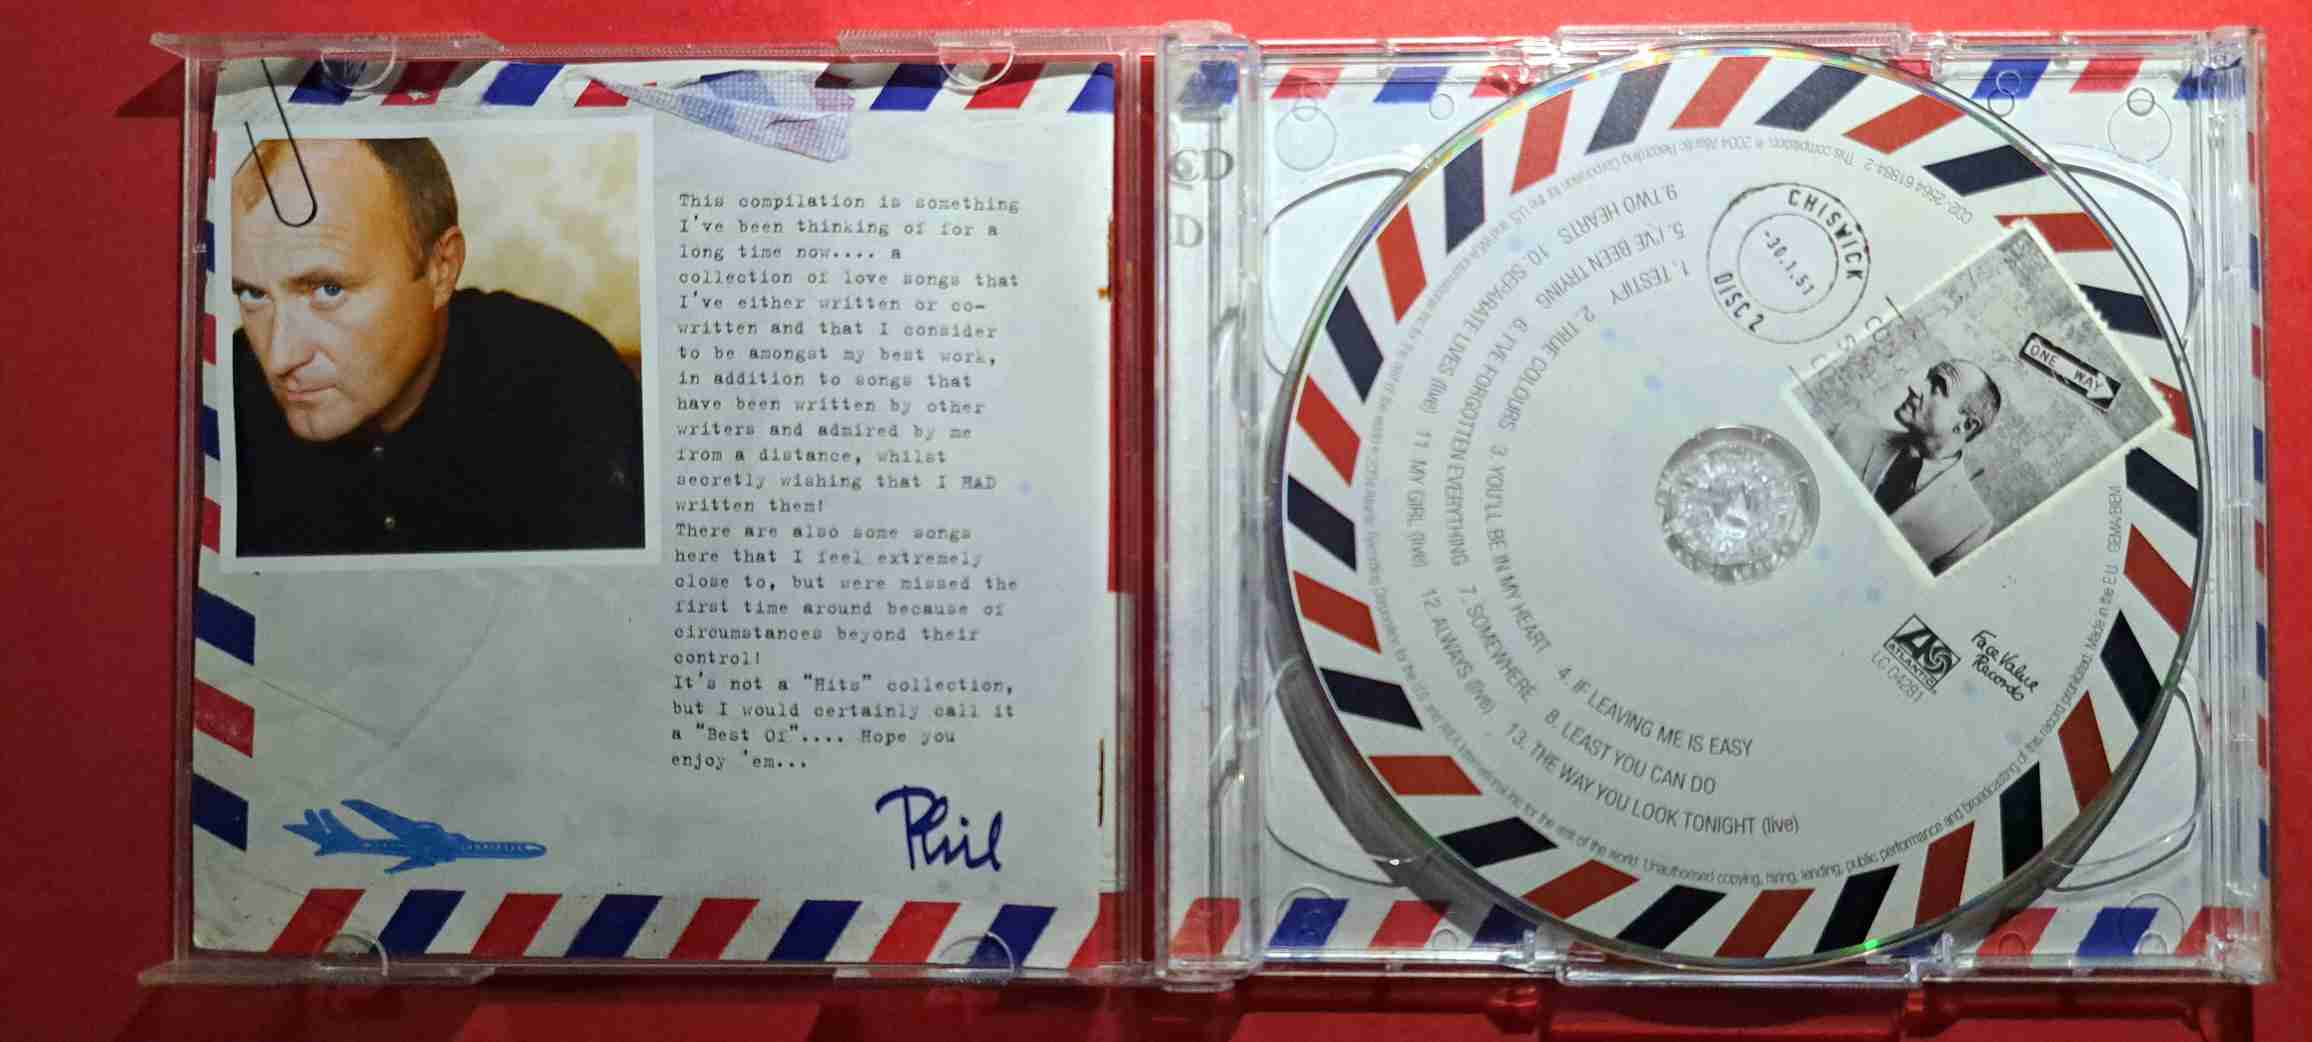 This compilation is something
I've been thinking of for a
long time now.... a
collection of love songs that
I've either written or co-
written and that I consider
to be amongst my best work,
in addition to songs that
have been written by other
writers and admired by me
from a distance, whilst
secretly wishing that I HAD
written them!
There are also some songs
here that I feel extremely
close to, but were missed the
first time around because of
circumstances beyond their
control!
It's not a "Hits" collection,
but I would certainly call it
a "Best Of".... Hope you
enjoy 'em...
Phil
CD
D
CHISWICK
-30.1.51
DISC 2
ONE WAY
1. TESTIFY 2. TRUE COLOURS 3. YOU'LL BE IN MY HEART 4. IF LEAVING ME IS EASY
5. I'VE BEEN TRYING 6. I'VE FORGOTTEN EVERYTHING 7. SOMEWHERE 8. LEAST YOU CAN DO
9. TWO HEARTS 10. SEPARATE LIVES (live) 11. MY GIRL (live) 12. ALWAYS (live) 13. THE WAY YOU LOOK TONIGHT (live)
ATLANTIC
LC 04281
Face Value
Records
This compilation ℗ 2004 Atlantic Recording Corporation for the U.S. and WEA International Inc. for the rest of the world. Unauthorised copying, hiring, lending, public performance and broadcasting of this record prohibited. Made in the E.U. GEMA/BIEM